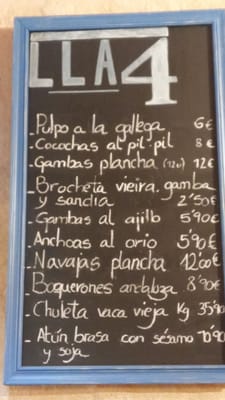 LLA4
- Pulpo a la gallega 6€
- Cocochas al pil-pil 8€
- Gambas plancha (12u) 12€
- Brocheta vieira, gamba
y sandía 2'50€
- Gambas al ajillo 5'90€
- Anchoas al orio 5'90€
- Navajas plancha 12'00€
- Boquerones andaluza 8'90€
- Chuleta vaca vieja Kg 35'90
- Atún brasa con sésamo 10'90
y soja